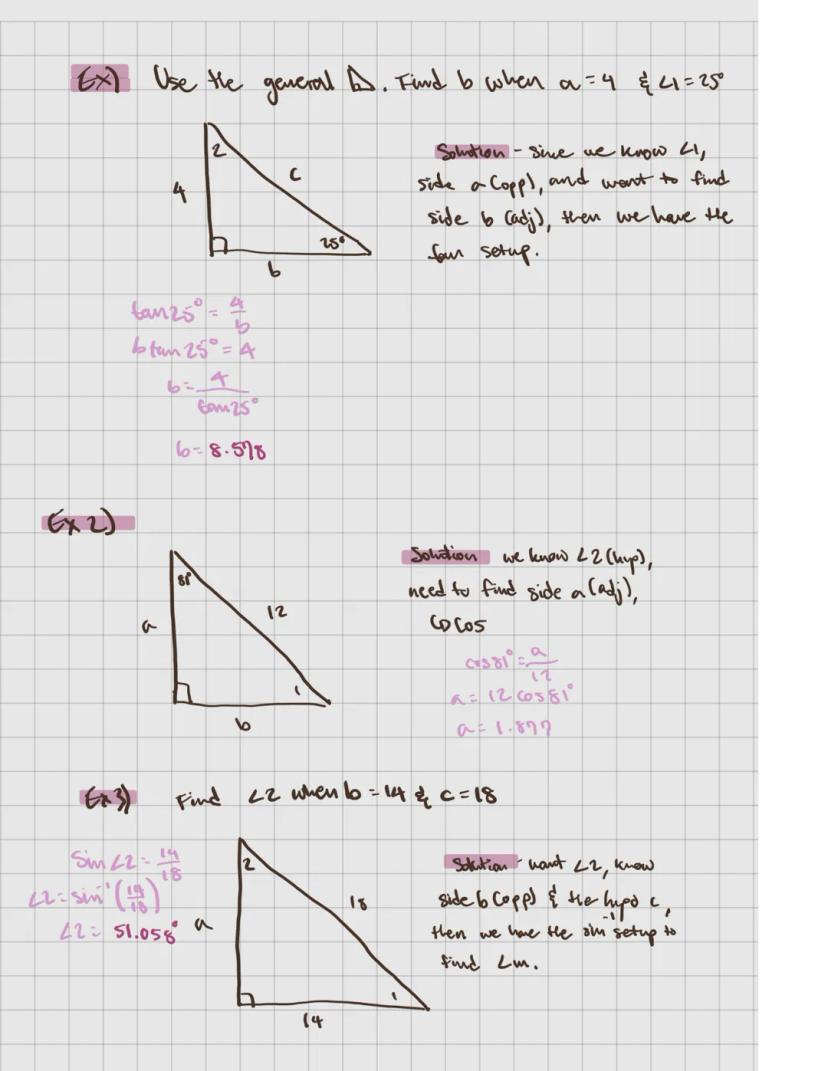 Ex) Use the general ◺. Find b when a = 4 & ∠1 = 25°
2
c
4
25°
b
Solution - since we know ∠1,
side a (opp), and want to find
side b (adj), then we have the
tan setup.
tan 25° = 4/b
b tan 25° = 4
b = 4/tan 25°
b = 8.578
Ex 2)
81°
12
a
1
b
Solution we know ∠2 (hyp),
need to find side a (adj),
Cos
cos 81° = a/12
a = 12 cos 81°
a = 1.877
Ex 3) Find ∠2 when b = 14 & c = 18
Sin ∠2 = 14/18
∠2 = sin⁻¹(14/18)
∠2 = 51.058°
2
18
a
1
14
Solution - want ∠2, know
side b (opp) & the hypo c,
then we have the sin⁻¹ setup to
find ∠m.